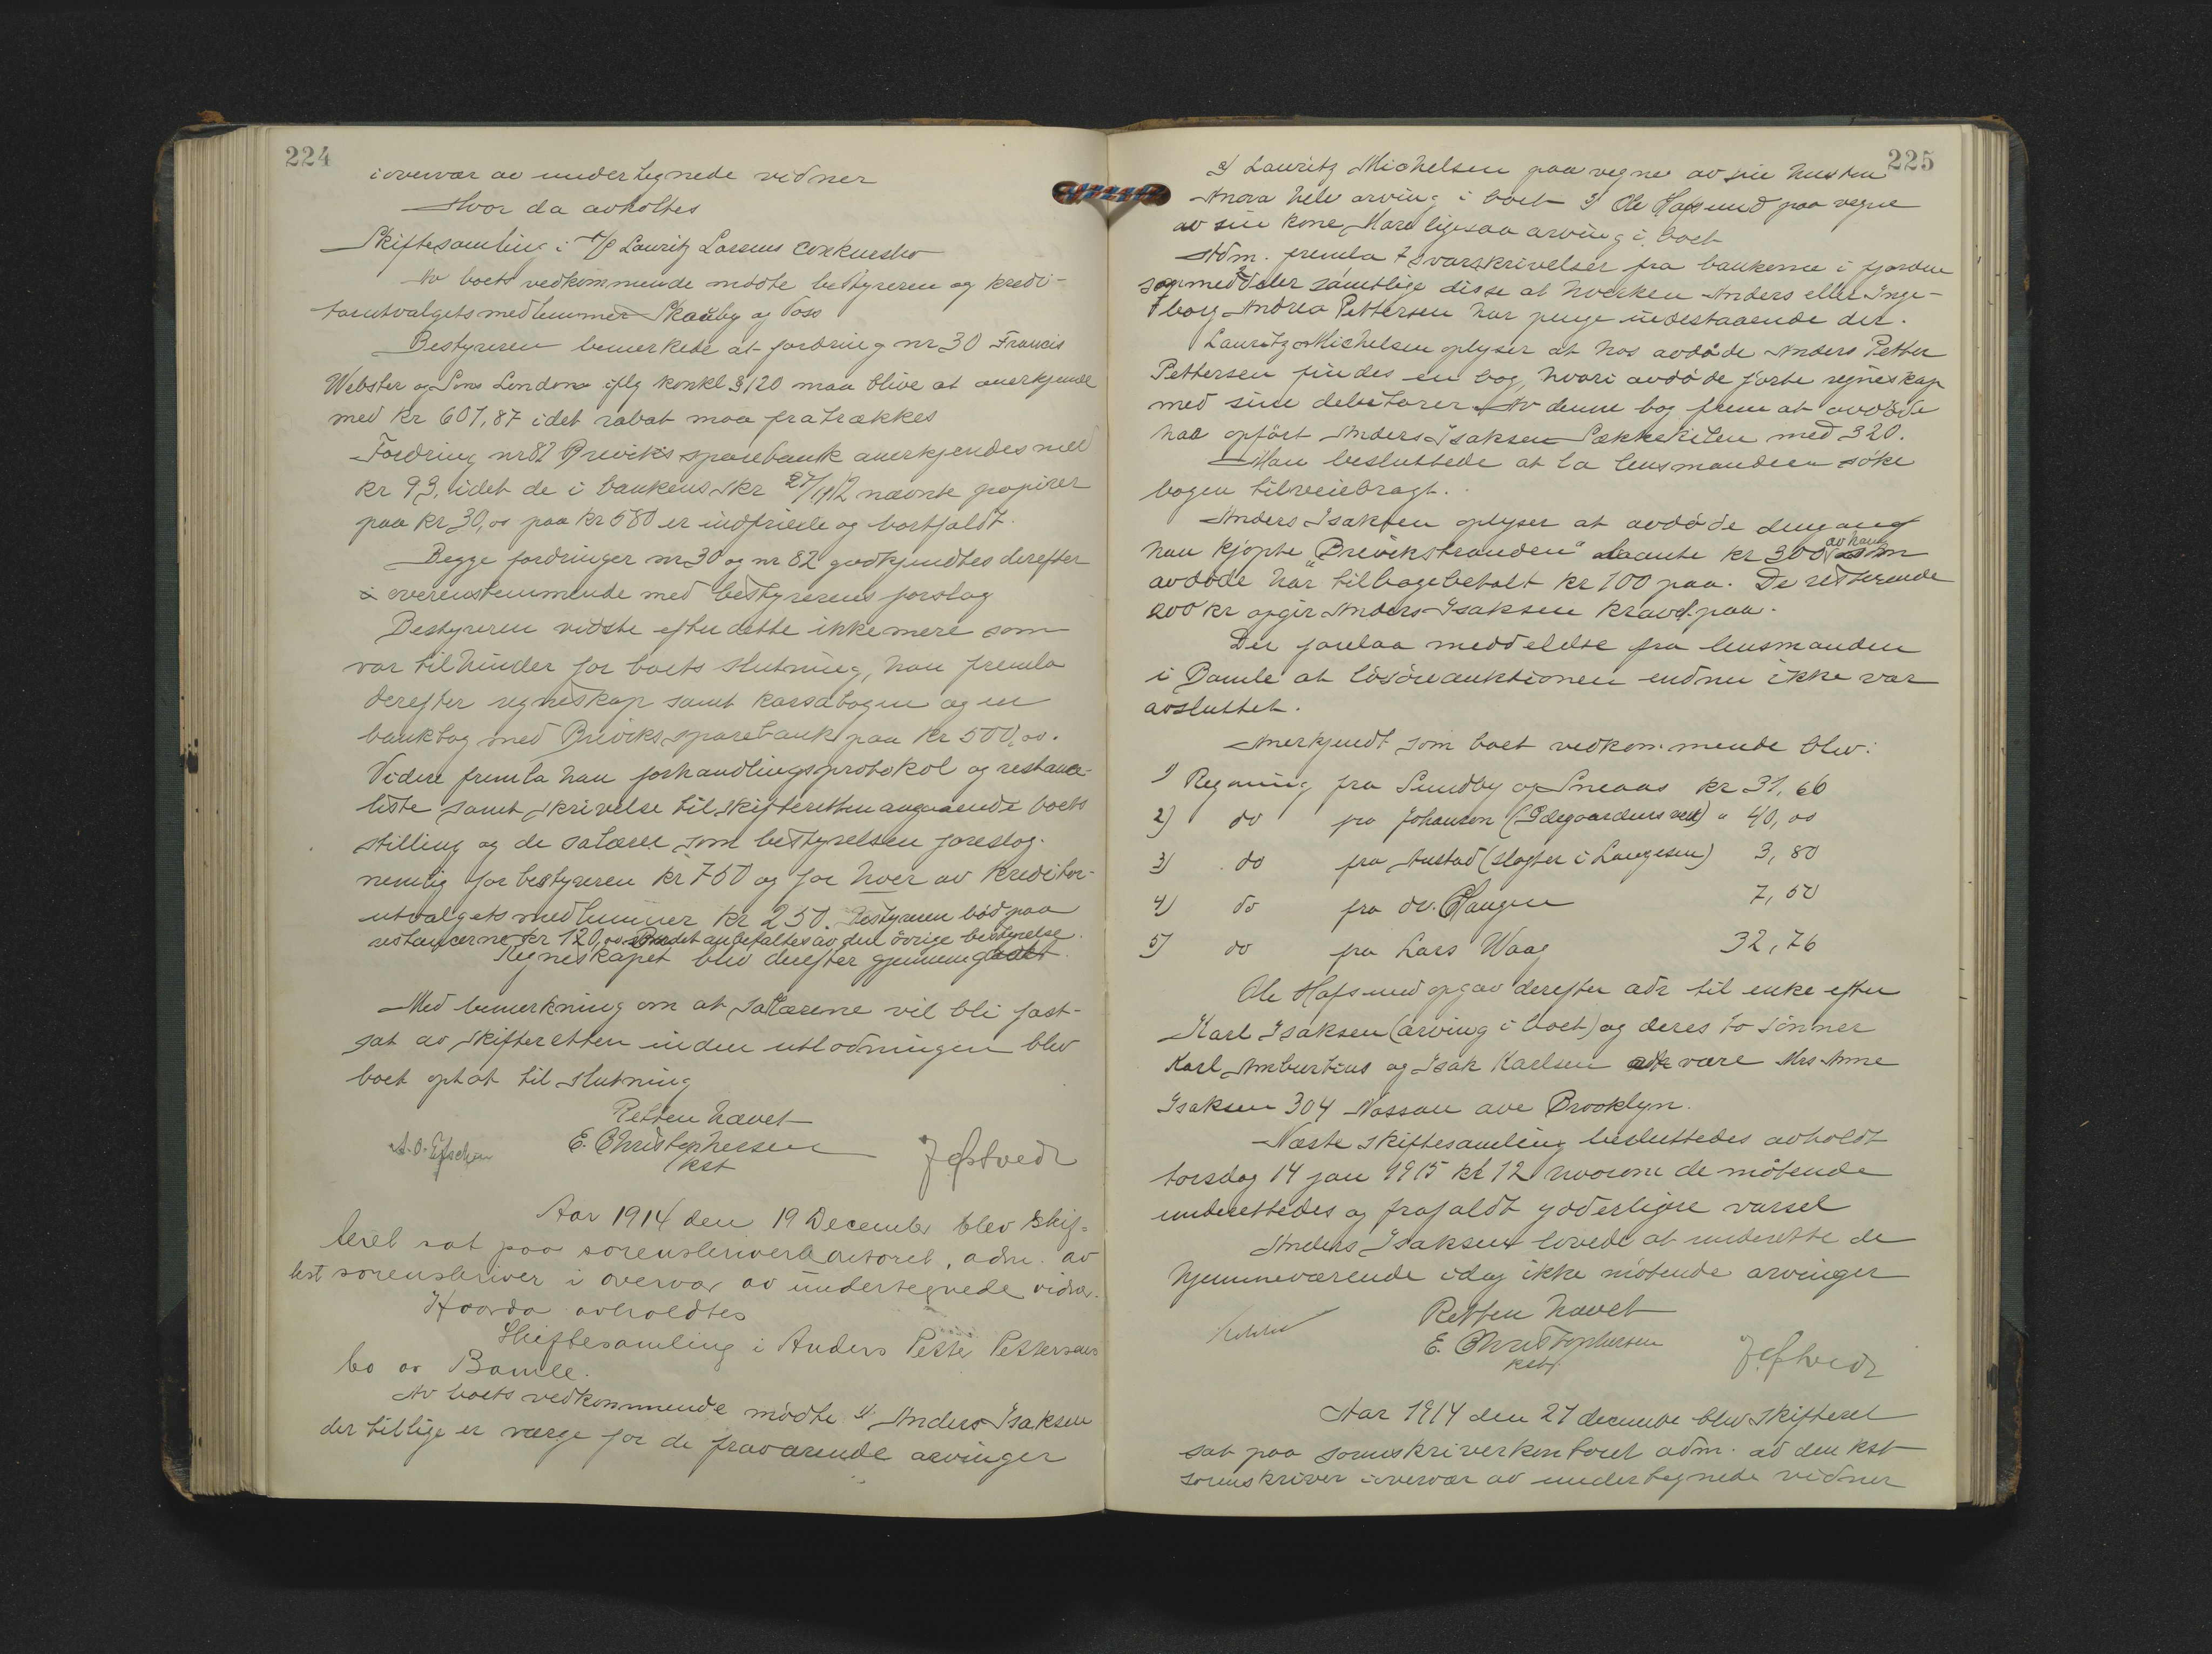 224
i overvær av undertegnede vidner
Hvor da avholtes
Skiftesamling i A/S Lauritz Larsens conkursbo
Av boets vedkommende mødte bestyreren og kredi-
torutvalgets medlemmer Skauby og Foss
Bestyreren bemerkede at fordring nr 30 Francis
Webster og Sons London iflg konkl § 120 maa blive at anerkjende
med kr 601,87 idet rabat maa fratrækkes
Fordring nr 82 Breviks sparebank anerkjendes med
kr 93, idet de i bankens skr 27/11 12 nævnte papirer
paa kr 30,00 paa kr 580 er indfriede og bortfaldt.
Begge fordringer nr 30 og nr 82 godkjendtes derefter
i overenstemmende med bestyrerens forslag
Bestyreren vidste efter dette ikke mere som
var til hinder for boets slutning, han fremla
derefter regnskap samt kassabogen og en
bankbog med Breviks sparebank paa kr 500,00.
Videre fremla han forhandlingsprotokol og restance-
liste samt skrivelse til skifteretten angaaende boets
stilling og de salærer som bestyrelsen foreslog.
nemlig for bestyreren kr 750 og for hver av kreditor-
utvalgets medlemmer kr 250. Bestyreren bød paa
restancerne kr 120,00 Budet anbefaltes av den övrige bestyrelse.
Regneskapet blev derefter gjennemgaat.
Med bemerkning om at salærerne vil bli fast-
sat av skifteretten inden utlodningen blev
boet optat til slutning
Retten hævet
E. Christophersen
kst
J. Østvedt
Aar 1914 den 19 December blev skif-
teret sat paa sorenskriverkontoret, adm. av
kst sorenskriver i overvær av undertegnede vidner.
Hvorda avholdtes
Skiftesamling i Anders Petter Pettersens
bo av Bamle.
Av boets vedkommende mødte 1) Anders Isaksen
der tillige er værge for de fraværende arvinger
225
2) Lauritz Michelsen paa vegne av sin hustru
Anora Hele arving i boet 3) Ole Hafsund paa vegne
av sin kone, Maren ligesaa arving i boet
Adm. fremla 7 svarskrivelser fra bankerne i fjorden
og meddeler samtlige disse at hverken Anders eller Inge-
borg Andrea Pettersen har penge indestaaende der.
Lauritz Michelsen oplyser at hos avdøde Anders Petter
Pettersen findes en bog, hvori avdøde førte regneskap
med sine debitorer. Av denne bog frem at avdøde
har opført Anders Isaksen Sækkekilen med 320.
Man besluttede at la lensmanden søke
bogen tilveiebragt.
Anders Isaksen oplyser at avdøde dengang
han kjøpte "Breviksstranden" laante kr 300 av ham som
avdøde har tilbagebetalt kr 100 paa. De resterende
200 kr opgir Anders Isaksen kravet paa.
Der forelaa meddelelse fra lensmanden
i Bamle at løsøreauktionen endnu ikke var
avsluttet.
Anerkjendt som boet vedkommende blev:
1) Regning fra Sundby og Sneaas kr 31,66
2) do fra Johansen (Ødegaardens verk) " 40,00
3) do fra Austad (slagter i Langesun) 3,80
4) do fra dr. Haugen 7,50
5) do fra Lars Waag 32,76
Ole Hafsund opgav derefter adr til enke efter
Karl Isaksen (arving i boet) og deres to sønner
Karl Amburtius og Isak Karlsen at være Mrs Anne
Isaksen 304 Nassau ave Brooklyn.
Næste skiftesamling besluttedes avholdt
torsdag 14 jan 1915 kl 12 hvorom de møtende
underettedes og frafaldt yderligere varsel
Anders Isaksen lovede at underette de
hjemmeværende idag ikke møtende arvinger
Retten hævet
E. Christophersen
kst
J. Østvedt
Aar 1914 den 21 december blev skifteret
sat paa sorenskriverkontoret adm. av den kst
sorenskriver i overvær av undertegnede vidner